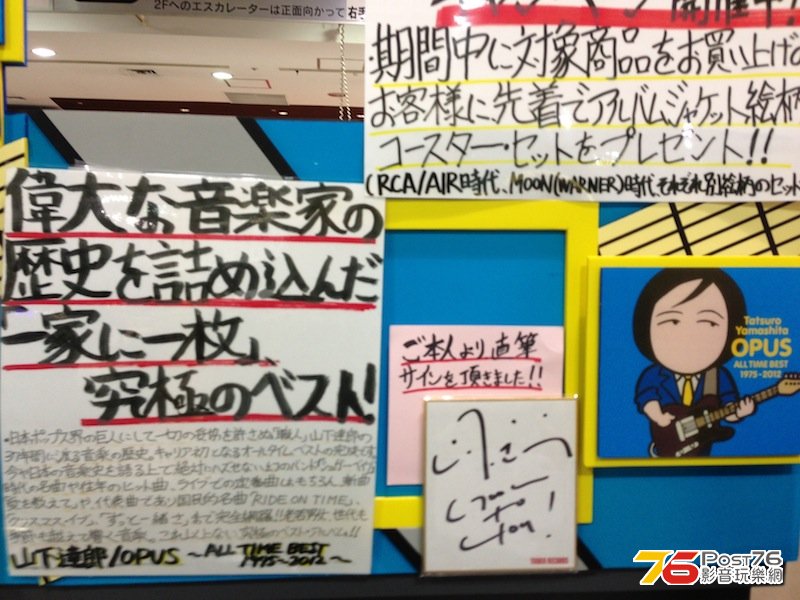 2Fへのエスカレーターは正面向かって右手
開催中!!
・期間中に対象商品をお買い上げの
お客様に、先着でアルバムジャケット絵柄
コースター・セットをプレゼント!!
(RCA/AIR時代、MOON(WARNER)時代、それぞれ別絵柄のセット
偉大な音楽家の
歴史を詰め込んだ
「一家に一枚」、
究極のベスト!
・日本ポップス界の巨人にして一切の妥協を許さぬ「職人」山下達郎の
37年間に渡る音楽の歴史。キャリア初となるオールタイム・ベストの完成です。
時代の名曲や往年のヒット曲、ライブでの定番曲はもちろん、新曲
で、代表曲であり国民的名曲「RIDE ON TIME」、
クリスマス・イブ」、「ずっと一緒さ」まで完全網羅!!老若男女、世代も
山下達郎/OPUS ~ALL TIME BEST
1975-2012~
ご本人より直筆
サインを頂きました!!
to
you!
TOWER RECORDS
Tatsuro
Yamashita
OPUS
ALL TIME BEST
1975-2012
76 Post76
影音玩樂網